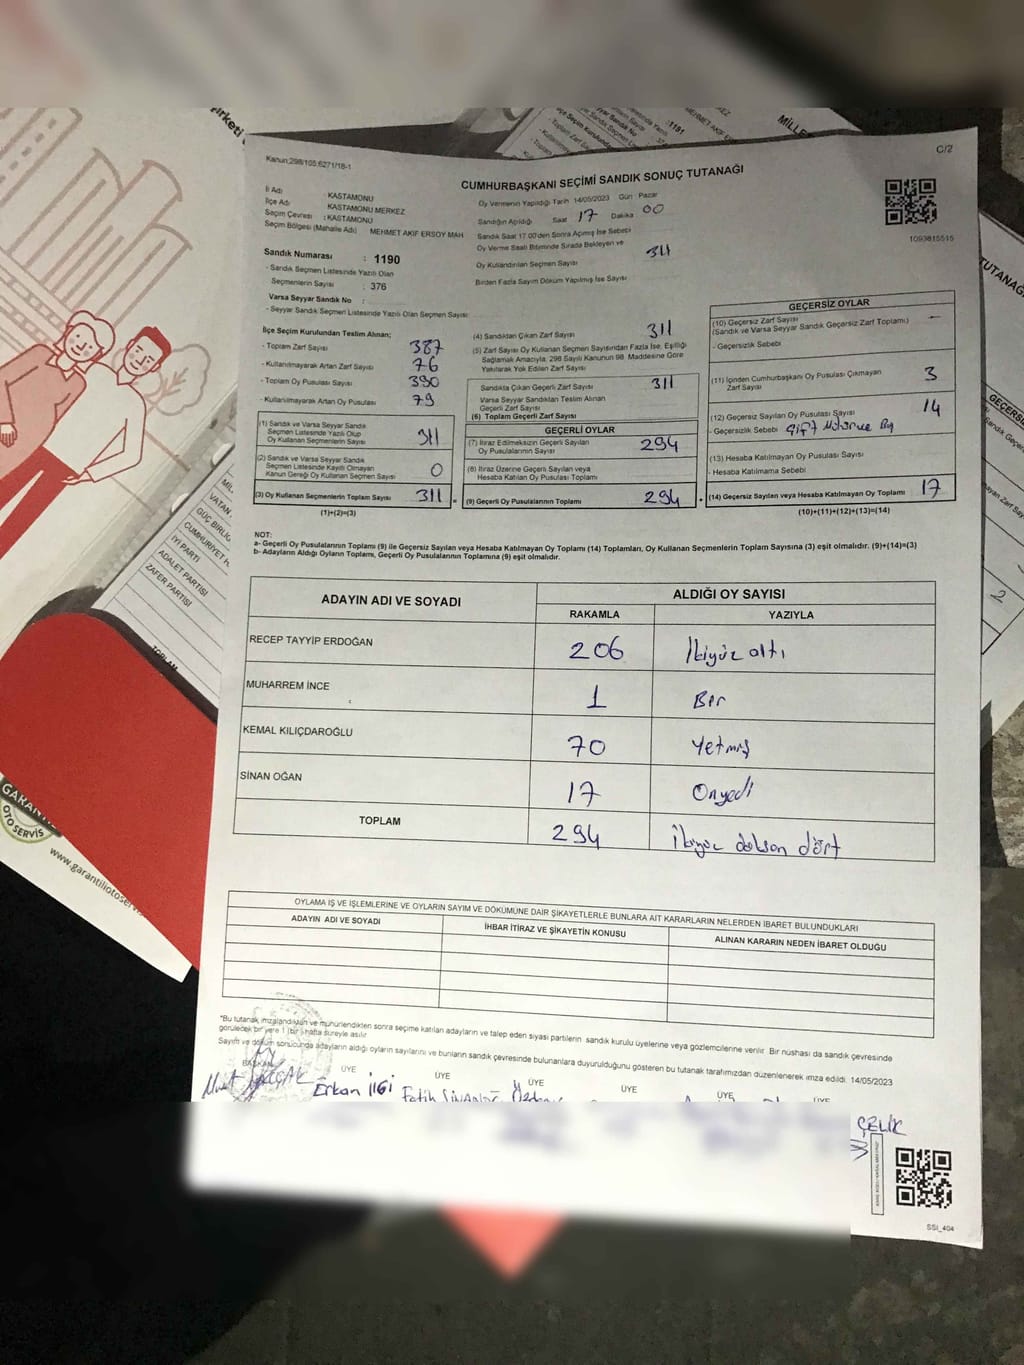 Kanun;298/105;6271/18-1
C/2
CUMHURBAŞKANI SEÇİMİ SANDIK SONUÇ TUTANAĞI
İl Adı : KASTAMONU
İlçe Adı : KASTAMONU MERKEZ
Seçim Çevresi : KASTAMONU
Seçim Bölgesi (Mahalle Adı) MEHMET AKİF ERSOY MAH
Oy Vermenin Yapıldığı Tarih 14/05/2023 Gün Pazar
Sandığın Açıldığı Saat 17 Dakika 00
Sandık Saat 17.00'den Sonra Açılmış İse Sebebi
Oy Verme Saati Bitiminde Sırada Bekleyen ve
Oy Kullandırılan Seçmen Sayısı 311
Birden Fazla Sayım Döküm Yapılmış İse Sayısı
1093815515
Sandık Numarası : 1190
- Sandık Seçmen Listesinde Yazılı Olan
Seçmenlerin Sayısı : 376
Varsa Seyyar Sandık No :
- Seyyar Sandık Seçmen Listesinde Yazılı Olan Seçmen Sayısı:
İlçe Seçim Kurulundan Teslim Alınan;
- Toplam Zarf Sayısı 387
- Kullanılmayarak Artan Zarf Sayısı 76
- Toplam Oy Pusulası Sayısı 390
- Kullanılmayarak Artan Oy Pusulası 79
(1) Sandık ve Varsa Seyyar Sandık
Seçmen Listesinde Yazılı Olup
Oy Kullanan Seçmenlerin Sayısı 311
(2) Sandık ve Varsa Seyyar Sandık
Seçmen Listesinde Kayıtlı Olmayan
Kanun Gereği Oy Kullanan Seçmen Sayısı 0
(3) Oy Kullanan Seçmenlerin Toplam Sayısı 311 =
(1)+(2)=(3)
(4) Sandıktan Çıkan Zarf Sayısı 311
(5) Zarf Sayısı Oy Kullanan Seçmen Sayısından Fazla İse, Eşitliği
Sağlamak Amacıyla; 298 Sayılı Kanunun 98. Maddesine Göre
Yakılarak Yok Edilen Zarf Sayısı
Sandıkta Çıkan Geçerli Zarf Sayısı 311
Varsa Seyyar Sandıktan Teslim Alınan
Geçerli Zarf Sayısı
(6) Toplam Geçerli Zarf Sayısı
GEÇERLİ OYLAR
(7) İtiraz Edilmeksizin Geçerli Sayılan
Oy Pusulalarının Sayısı 294
(8) İtiraz Üzerine Geçerli Sayılan veya
Hesaba Katılan Oy Pusulası Toplamı
(9) Geçerli Oy Pusulalarının Toplamı 294 +
GEÇERSİZ OYLAR
(10) Geçersiz Zarf Sayısı
(Sandık ve Varsa Seyyar Sandık Geçersiz Zarf Toplamı) —
- Geçersizlik Sebebi
(11) İçinden Cumhurbaşkanı Oy Pusulası Çıkmayan
Zarf Sayısı 3
(12) Geçersiz Sayılan Oy Pusulası Sayısı 14
- Geçersizlik Sebebi Çift Mühürce
(13) Hesaba Katılmayan Oy Pusulası Sayısı
- Hesaba Katılmama Sebebi
(14) Geçersiz Sayılan veya Hesaba Katılmayan Oy Toplamı 17
(10)+(11)+(12)+(13)=(14)
NOT:
a- Geçerli Oy Pusulalarının Toplamı (9) ile Geçersiz Sayılan veya Hesaba Katılmayan Oy Toplamı (14) Toplamları, Oy Kullanan Seçmenlerin Toplam Sayısına (3) eşit olmalıdır. (9)+(14)=(3)
b- Adayların Aldığı Oyların Toplamı, Geçerli Oy Pusulalarının Toplamına (9) eşit olmalıdır.
ADAYIN ADI VE SOYADI
ALDIĞI OY SAYISI
RAKAMLA YAZIYLA
RECEP TAYYİP ERDOĞAN 206 İkiyüz altı
MUHARREM İNCE 1 Bir
KEMAL KILIÇDAROĞLU 70 Yetmiş
SİNAN OĞAN 17 Onyedi
TOPLAM 294 İkiyüz doksan dört
OYLAMA İŞ VE İŞLEMLERİNE VE OYLARIN SAYIM VE DÖKÜMÜNE DAİR ŞİKAYETLERLE BUNLARA AİT KARARLARIN NELERDEN İBARET BULUNDUKLARI
ADAYIN ADI VE SOYADI
İHBAR İTİRAZ VE ŞİKAYETİN KONUSU
ALINAN KARARIN NEDEN İBARET OLDUĞU
*Bu tutanak imzalandıktan ve mühürlendikten sonra seçime katılan adayların ve talep eden siyasi partilerin sandık kurulu üyelerine veya gözlemcilerine verilir. Bir nüshası da sandık çevresinde
görülecek bir yere 1 (bir) hafta süreyle asılır.
Sayım ve döküm sonucunda adayların aldığı oyların sayılarını ve bunların sandık çevresinde bulunanlara duyurulduğunu gösteren bu tutanak tarafımızdan düzenlenerek imza edildi. 14/05/2023
BAŞKAN ÜYE ÜYE ÜYE ÜYE ÜYE ÜYE
Murat
Erkan İLGİ
Fatih
ÇELİK
SSİ_404
irketi
MİLLE
:1191
MEHMET AKİF
TUTANAĞ
VATAN
GÜÇ BİRLİĞ
CUMHURİYET
İYİ PARTİ
ADALET PARTİSİ
ZAFER PARTİSİ
TOPLAM
2
GARANTİ
OTO SERVİS
www.garantiliotoservis